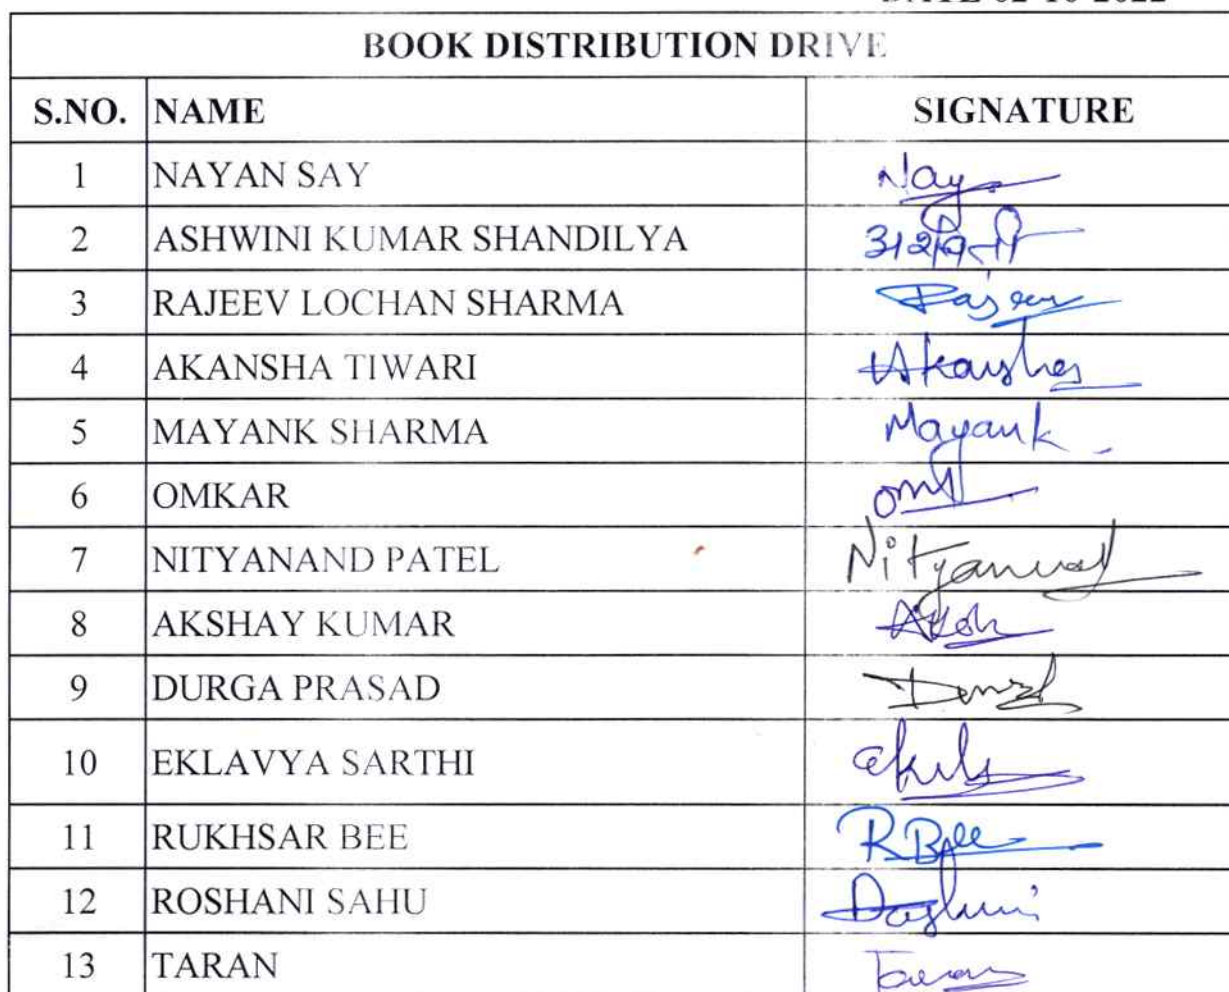 DATE 02-10-2022
BOOK DISTRIBUTION DRIVE
S.NO. NAME SIGNATURE
1 NAYAN SAY Nay
2 ASHWINI KUMAR SHANDILYA अश्विनी
3 RAJEEV LOCHAN SHARMA Rajeev
4 AKANSHA TIWARI Akansha
5 MAYANK SHARMA Mayank
6 OMKAR
7 NITYANAND PATEL Nityanand
8 AKSHAY KUMAR
9 DURGA PRASAD
10 EKLAVYA SARTHI
11 RUKHSAR BEE R Bee
12 ROSHANI SAHU
13 TARAN Taran